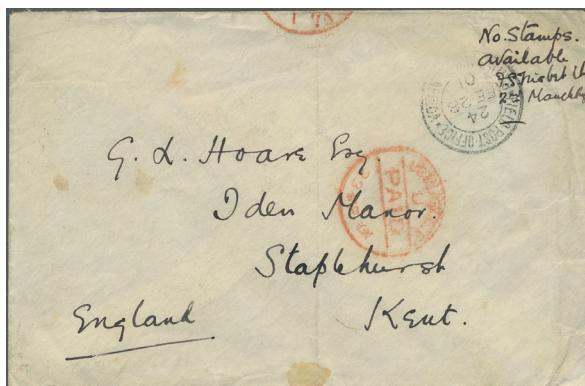 No. Stamps.
available
FIELD POST-OFFICE
G. L. Hoare Esq.
PAID
Iden Manor.
Staplehurst
England
Kent.